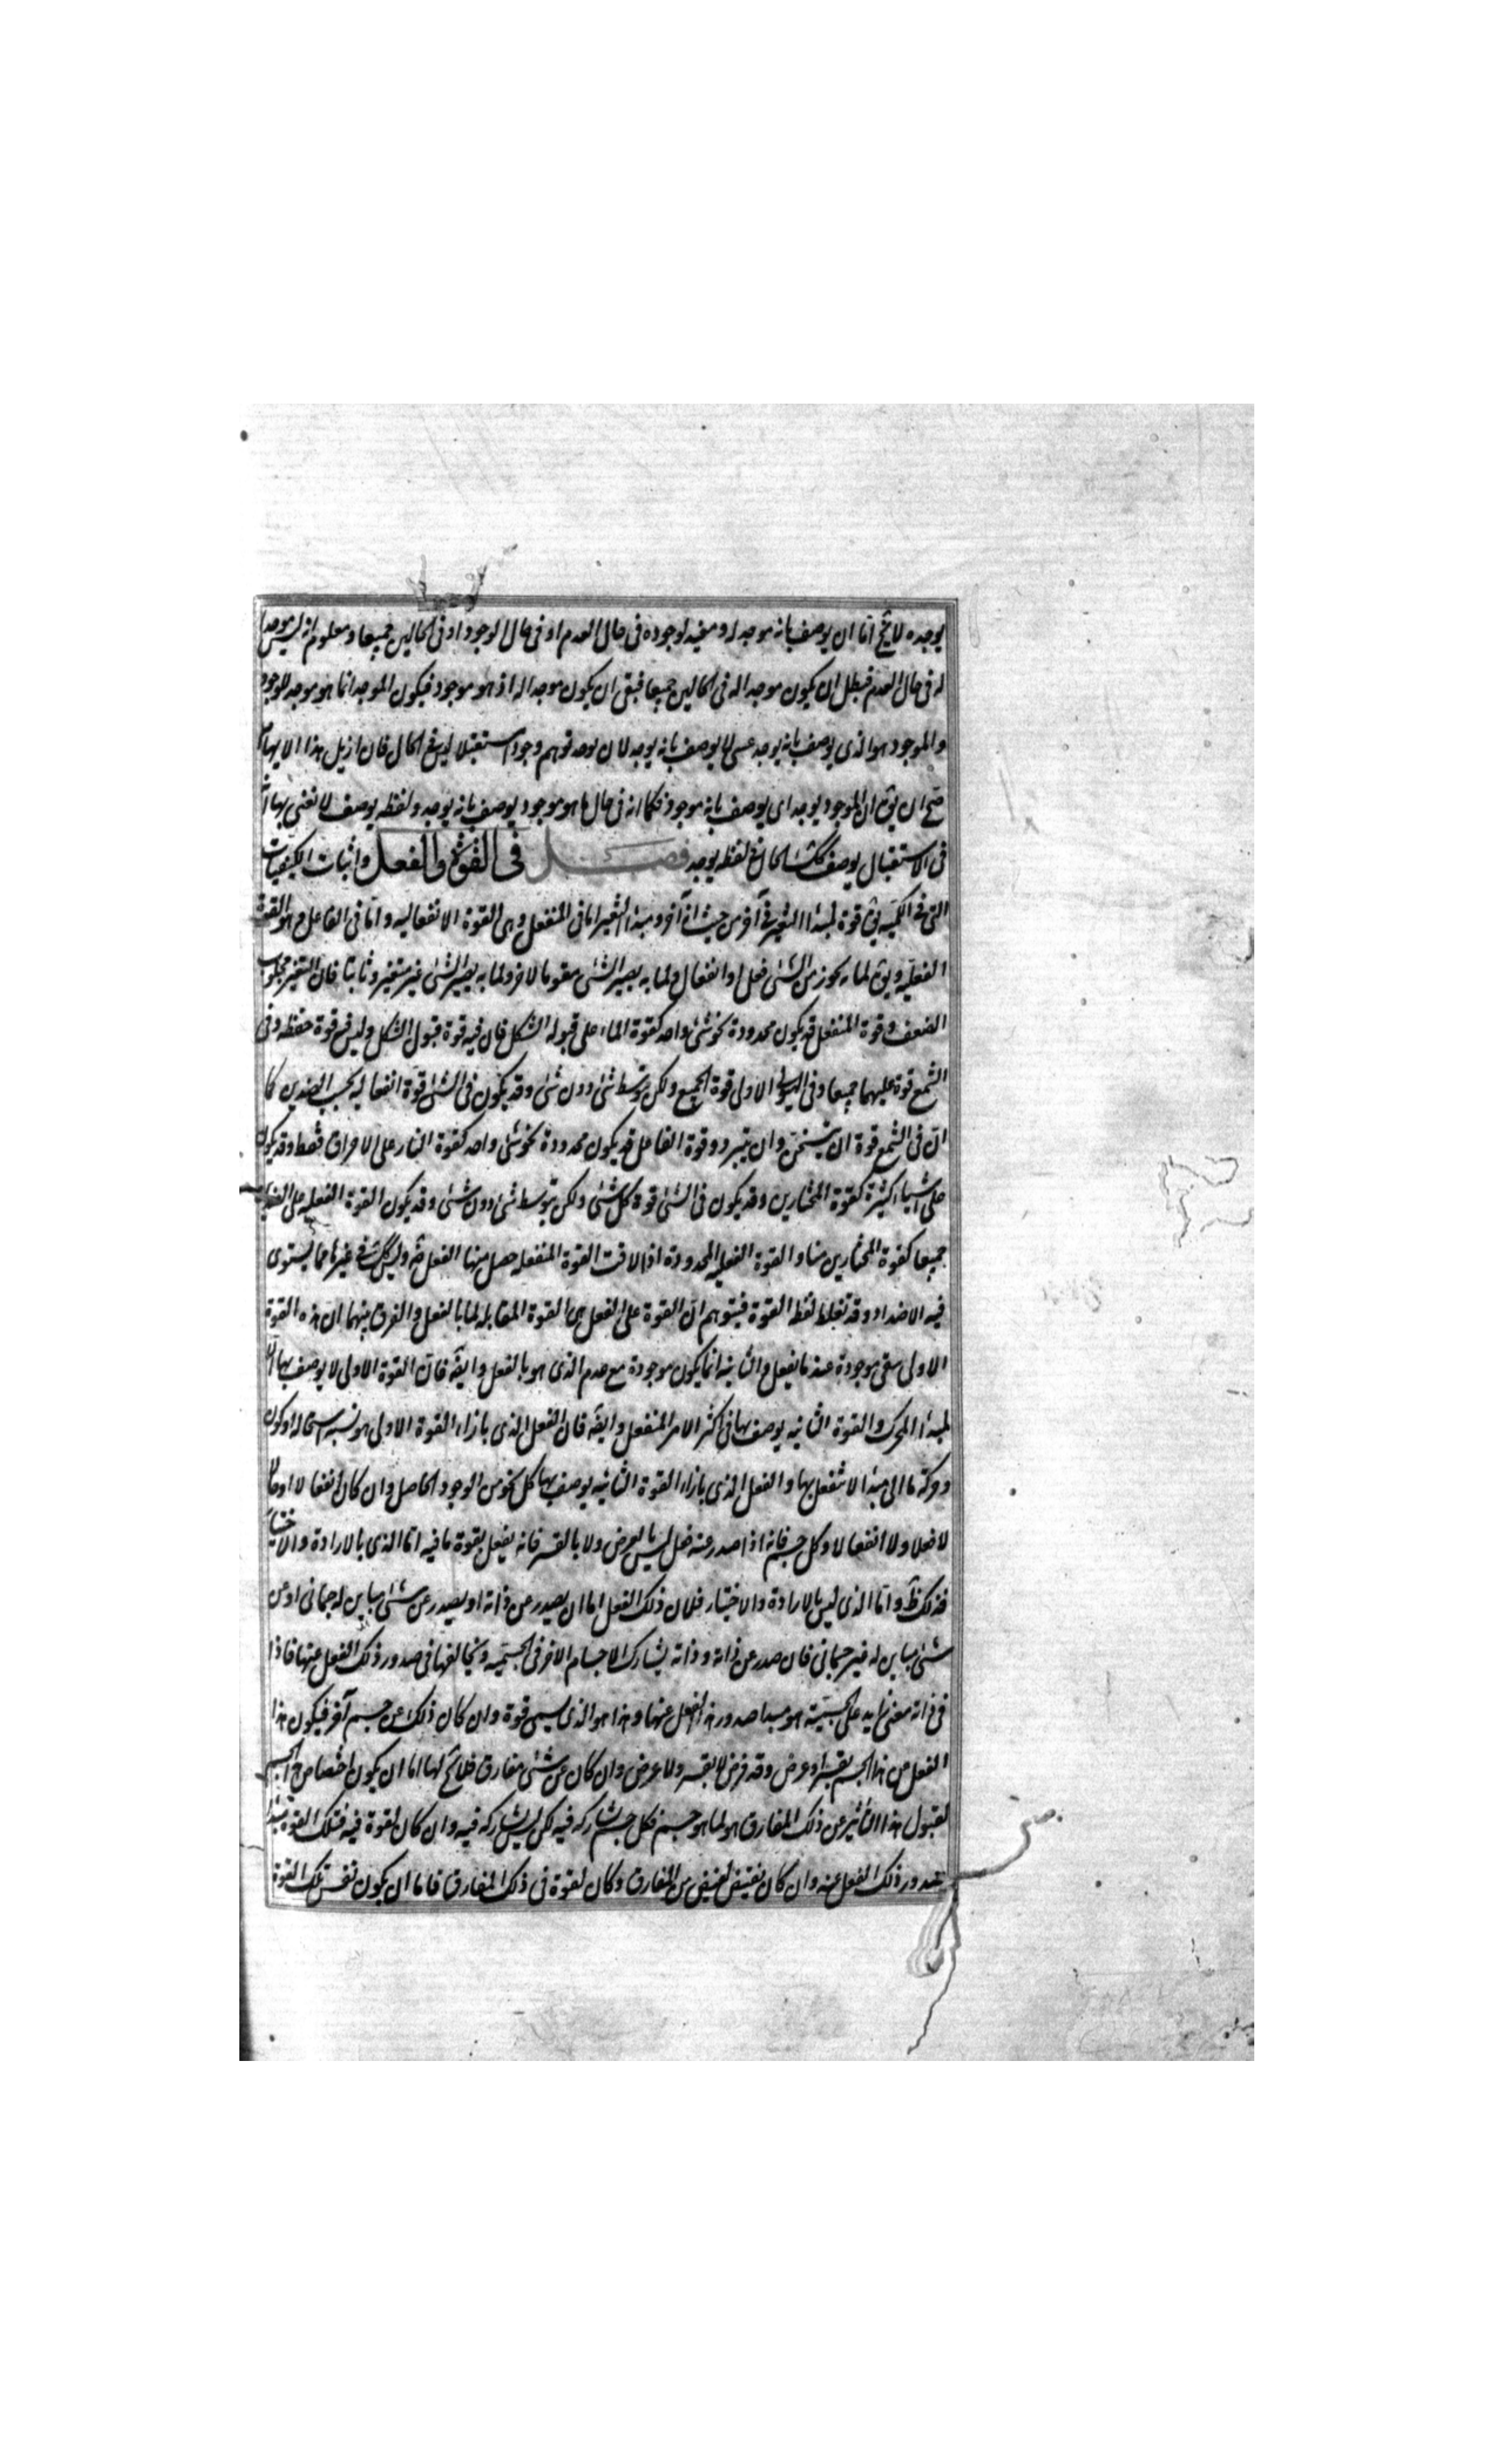 يوجده لا يخ اما ان يوصف بانه موجد له ومفيد لوجوده فى حال العدم او فى حال الوجود او فى الحالين جميعا ومعلوم انه ليس موجدا
له فى حال العدم فبطل ان يكون موجدا له فى الحالين جميعا فبقى ان يكون موجدا له اذ هو موجود فيكون الموجد انما هو موجد للموجود
والموجود هو الذى يوصف بانه يوجد عسى لا يوصف بانه يوجد لان يوجد توهم وجودا مستقبلا ليس فى الحال فان ازيل هذا الايهام
صح ان يق ان الموجود يوجد اى يوصف بانه موجود فكما انه فى حال ما هو موجود يوصف بانه يوجد ولفظه يوصف لا نعنى بها انه
فى الاستقبال يوصف كك الحال فى لفظه يوجد فصل فى القوة والفعل واثبات الكيفيات
التى فى الكميه يق قوة لمبدا التغير فى آخر من حيث انه آخر ومبدا التغير اما فى المنفعل وهى القوة الانفعاليه واما فى الفاعل وهو القوة
الفعليه ويق لما به يجوز من الشئ فعل او انفعال ولما به يصير الشئ مقوما لاخر ولما به يصير الشئ غير متغير وثابتا فان التغير مجلوب
الضعف وقوة المنفعل قد يكون محدودة نحو شئ واحد كقوة الماء على قبول الشكل فان فيه قوة قبول الشكل وليس فيه قوة حفظه وفى
الشمع قوة عليهما جميعا وفى الهيولى الاولى قوة الجميع ولكن بتوسط شئ دون شئ وقد يكون فى الشئ قوة انفعاليه بحسب الضدين كما
ان فى الشمع قوة ان يتسخن وان يتبرد وقوة الفاعل قد يكون محدودة نحو شئ واحد كقوة النار على الاحراق فقط وقد يكون
على اشياء كثيرة كقوة المختارين وقد يكون فى الشئ قوة كل شئ ولكن بتوسط شئ دون شئ وقد يكون القوة الفعليه على الضدين
جميعا كقوة المختارين منا والقوة الفعليه المحدودة اذا لاقت القوة المنفعله حصل منها الفعل ضه وليس كك فى غيرها مما يستوى
فيه الاضداد وقد تغلط لفظ القوة فيتوهم ان القوة على الفعل هى القوة المقابله لما بالفعل والفرق بينهما ان هذه القوة
الاولى يبقى موجودة عند ما يفعل والثانيه انما يكون موجودة مع عدم الذى هو بالفعل وايضه فان القوة الاولى لا يوصف بها الا
لمبدا المحرك والقوة الثانيه يوصف بها فى اكثر الامر المنفعل وايضه فان الفعل الذى بازاء القوة الاولى هو نسبة استحاله او كون
او حركة ما الى مبدا لا ينفعل بها والفعل الذى بازاء القوة الثانيه يوصف بها كل نحو من الوجود الحاصل وان كان انفعالا او حالا
لا فعلا ولا انفعالا وكل جسم فانه اذا صدر عنه فعل ليس بالعرض ولا بالقسر فانه يفعل بقوة ما فيه اما الذى بالارادة والاختيار
فذلك ظ واما الذى ليس بالارادة والاختيار فلان ذلك الفعل اما ان يصدر عن ذاته او يصدر عن شئ مباين له جسمانى او عن
شئ مباين له غير جسمانى فان صدر عن ذاته وذاته يشارك الاجسام الاخر فى الجسميه ويخالفها فى صدور ذلك الفعل عنها فاذا
فى ذاته معنى زايد على الجسميه هو مبدا صدور هذا الفعل عنها وهذا هو الذى يسمى قوة وان كان ذلك عن جسم آخر فيكون هذا
الفعل من هذا الجسم بقسر او عرض وقد فرض لا بقسر ولا عرض وان كان عن شئ مفارق فلا يخ لها اما ان يكون اختصاص هذا الجسم
لقبول هذا التاثير عن ذلك المفارق هو لما هو جسم فكل جسم شاركه فيه لكن ليس يشاركه فيه وان كان لقوة فيه فتلك القوة مبدا
صدور ذلك الفعل عنه وان كان يفيض لفيض من المفارق وكان لقوة فى ذلك المفارق فاما ان يكون نفس تلك القوة